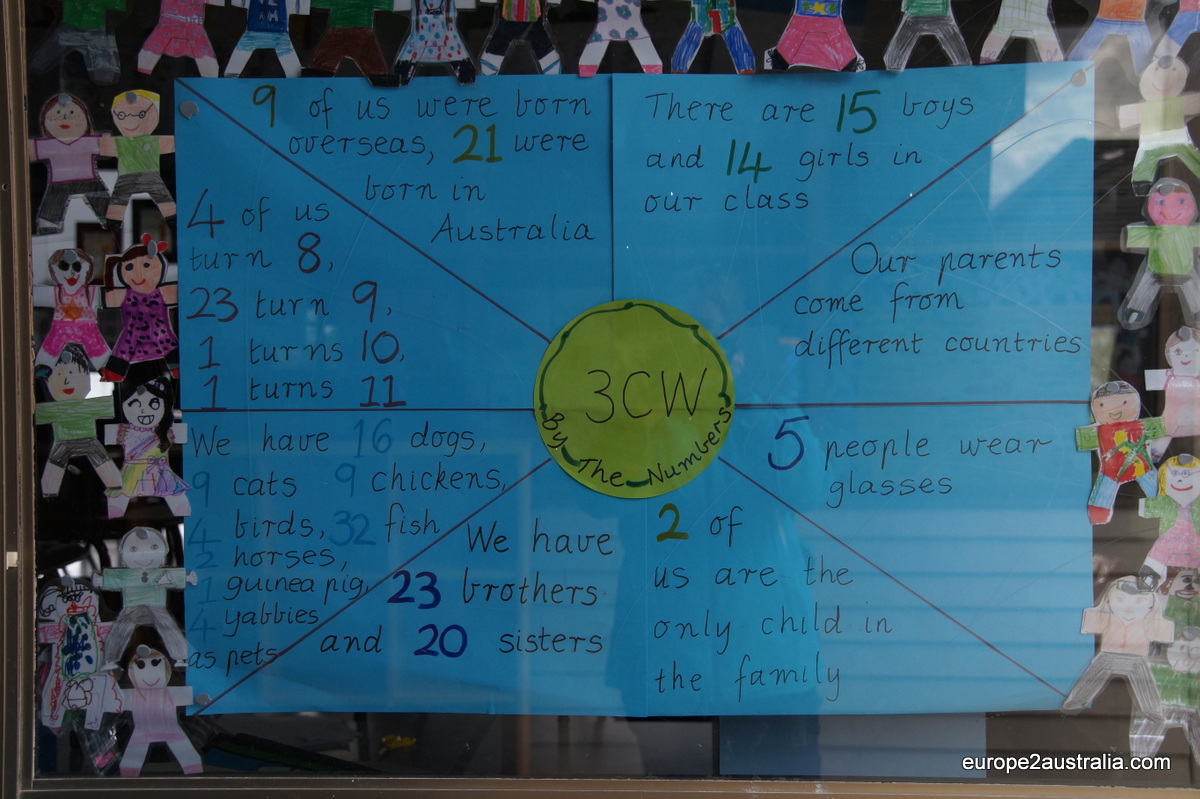 9 of us were born
overseas, 21 were
born in
Australia
There are 15 boys
and 14 girls in
our class
4 of us
turn 8,
23 turn 9,
1 turns 10,
1 turns 11
Our parents
come from
different countries
3CW
By The Numbers
We have 16 dogs,
9 cats 9 chickens,
4 birds, 32 fish
2 horses,
1 guinea pig,
4 yabbies
as pets
We have
23 brothers
and 20 sisters
5 people wear
glasses
2 of
us are the
only child in
the family
europe2australia.com